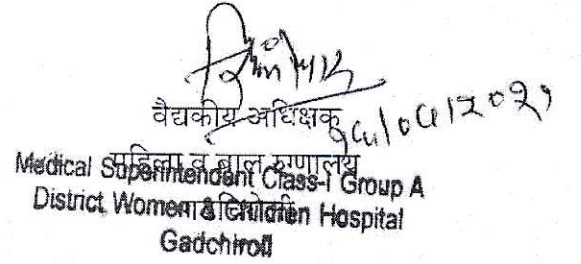 वैद्यकीय अधिक्षक
महिला व बाल रुग्णालय
Medical Superintendent Class-I Group A
गडचिरोली
District Women & Children Hospital
Gadchiroli